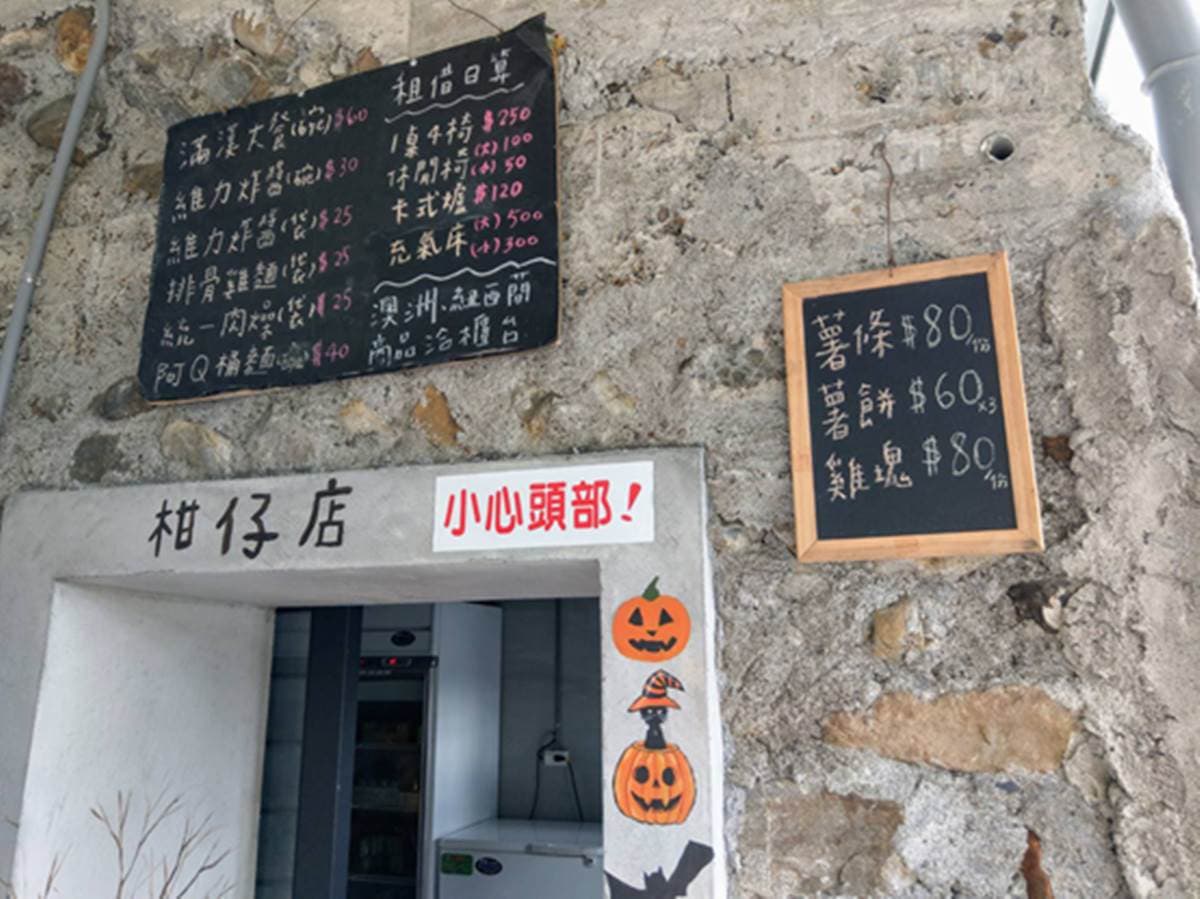 滿漢大餐(碗)$60
維力炸醬(碗)$30
維力炸醬(袋)$25
排骨雞麵(袋)$25
統一肉燥(袋)$25
阿Q桶麵 $40
租借日算
1桌4椅 $250
休閒椅(大)100
(小)50
卡式爐 $120
充氣床(大)500
(小)300
澳洲、紐西蘭
商品洽櫃台
薯條 $80/份
薯餅 $60x3
雞塊 $80/份
柑仔店
小心頭部!